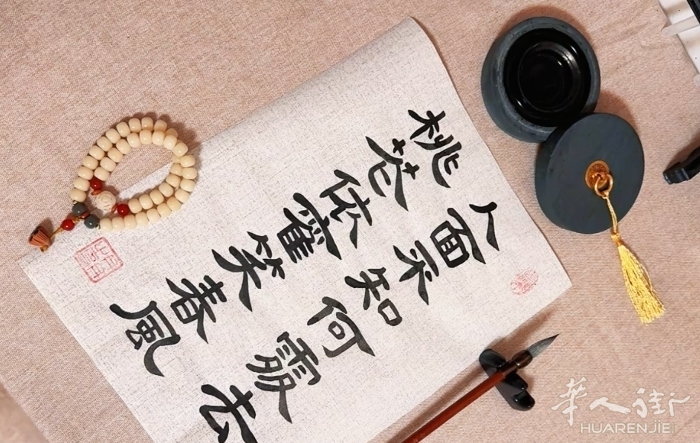 人面不知何處去
桃花依舊笑春風
華人街
HUARENJIE